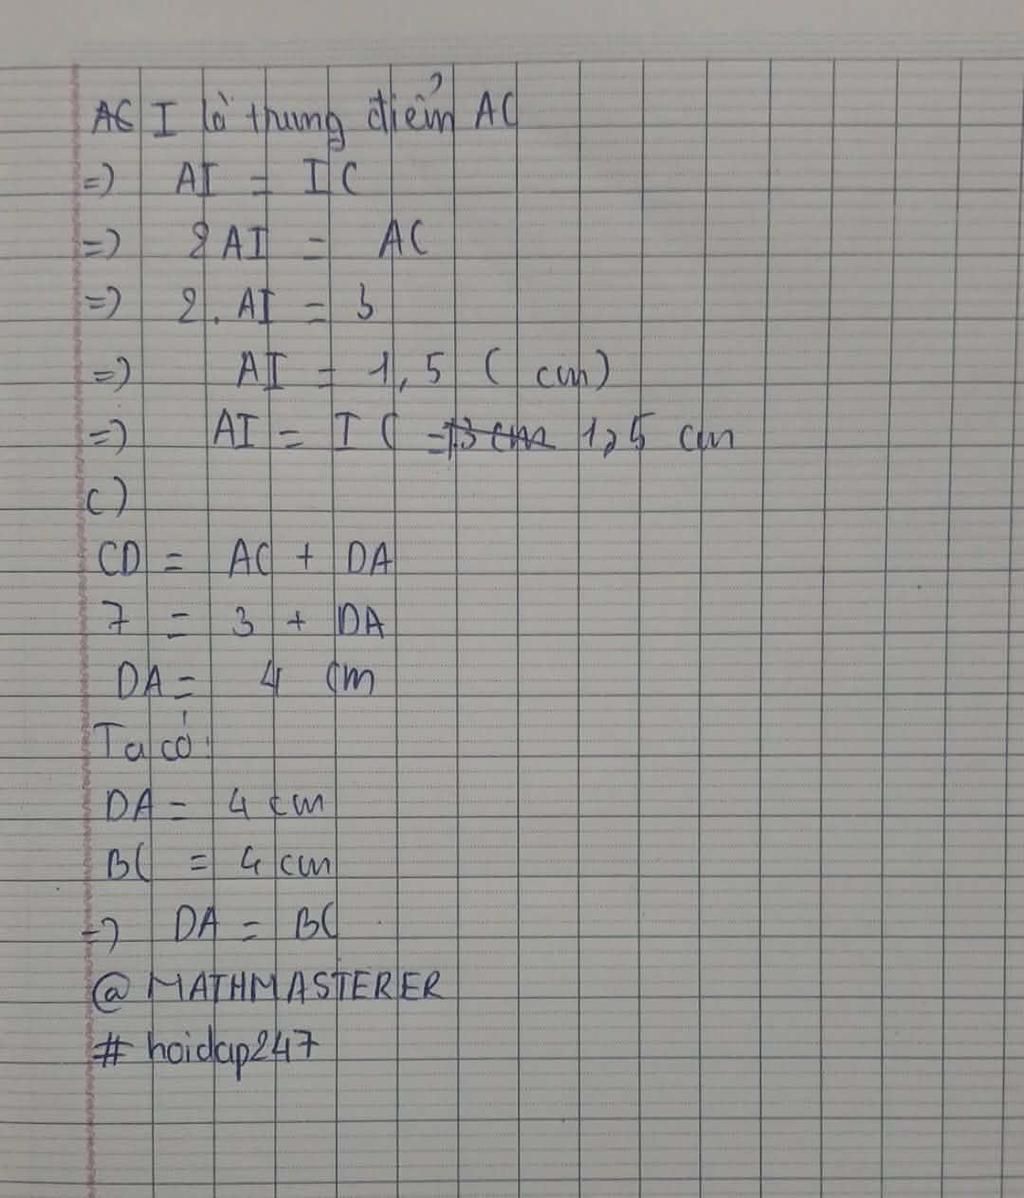 I là trung điểm AC
=> AI = IC
=> 2AI = AC
=> 2. AI = 3
=> AI = 1,5 ( cm)
=> AI = IC = 1,5 cm
c)
CD = AC + DA
7 = 3 + DA
DA = 4 cm
Ta có:
DA = 4 cm
BC = 4 cm
=> DA = BC
@ MATHMASTERER
# hoidap247